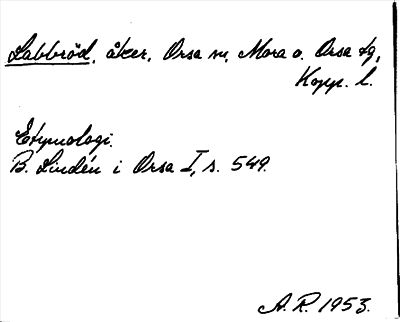 Labbröd, åker, Orsa sn, Mora o. Orsa tg,
Kopp. l.
Etymologi.
B. Lindén i Orsa I, s. 549.
A. R. 1953.